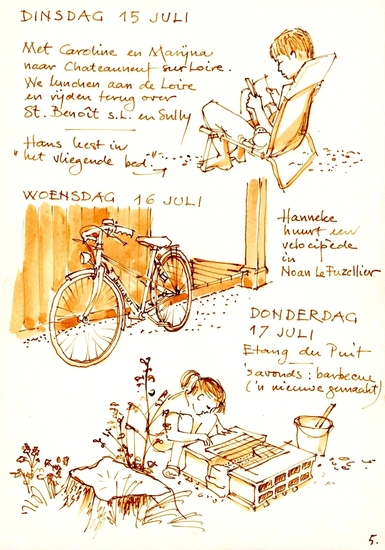 DINSDAG 15 JULI
Met Caroline en Marijna
naar Chateauneuf sur Loire.
We lunchen aan de Loire
en rijden terug over
St. Benoît s.L. en Sully
Hans leest in
"het vliegende bed."
WOENSDAG 16 JULI
Hanneke
huurt een
velocipède
in
Noan Le Fuzellier
DONDERDAG
17 JULI
Etang du Puit
's avonds: barbecue
('n nieuwe gemaakt)
5.